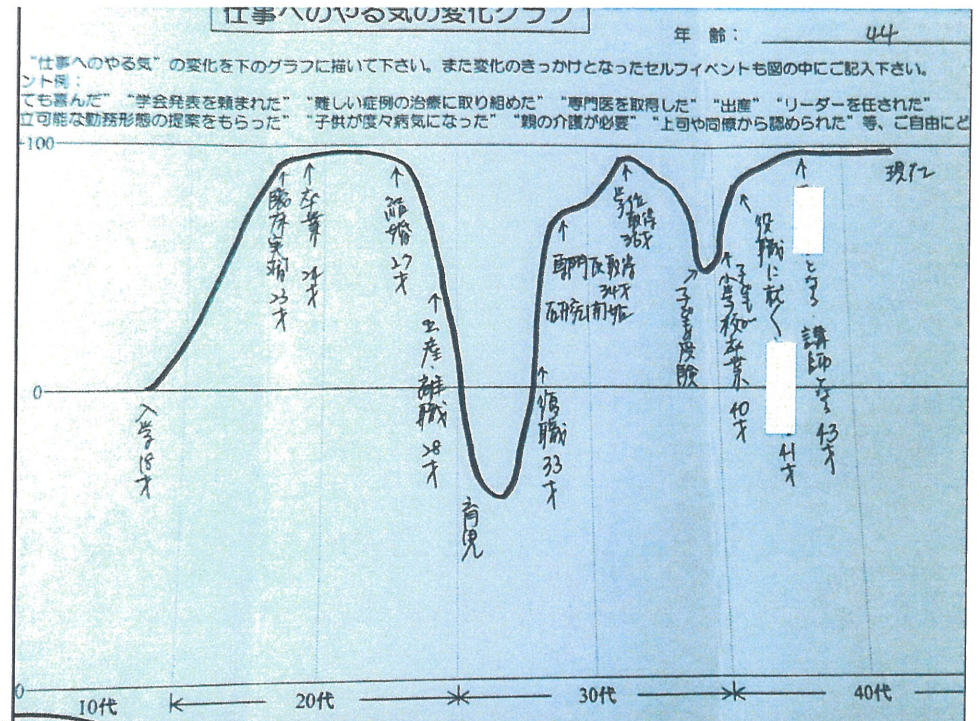 仕事へのやる気の変化グラフ
年 齢： 44
"仕事へのやる気"の変化を下のグラフに描いて下さい。また変化のきっかけとなったセルフイベントも図の中にご記入下さい。
ント例：
ても喜んだ" "学会発表を頼まれた" "難しい症例の治療に取り組めた" "専門医を取得した" "出産" "リーダーを任された"
立可能な勤務形態の提案をもらった" "子供が度々病気になった" "親の介護が必要" "上司や同僚から認められた" 等、ご自由にど
100
0
0
入学18才
臨床実習23才
卒業 24才
結婚27才
出産・離職 28才
育児
復職33才
専門医取得
34才
研究開始
学位
取得
36才
子ども受験
子どもが
小学校卒業 40才
役職に就く
41才
となる・講師となる 43才
現在
10代 20代 30代 40代